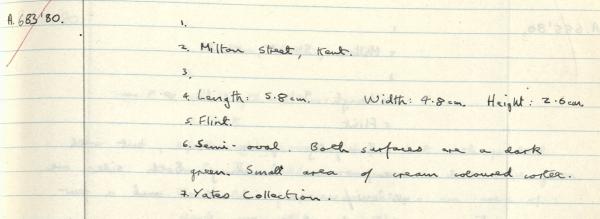 A.683'80.
1.
2. Milton Street, Kent.
3.
4. Length: 5.8cm. Width: 4.8cm. Height: 2.6cm
5. Flint.
6. Semi-oval. Both surfaces are a dark
green. Small area of cream coloured cortex.
7. Yates Collection.